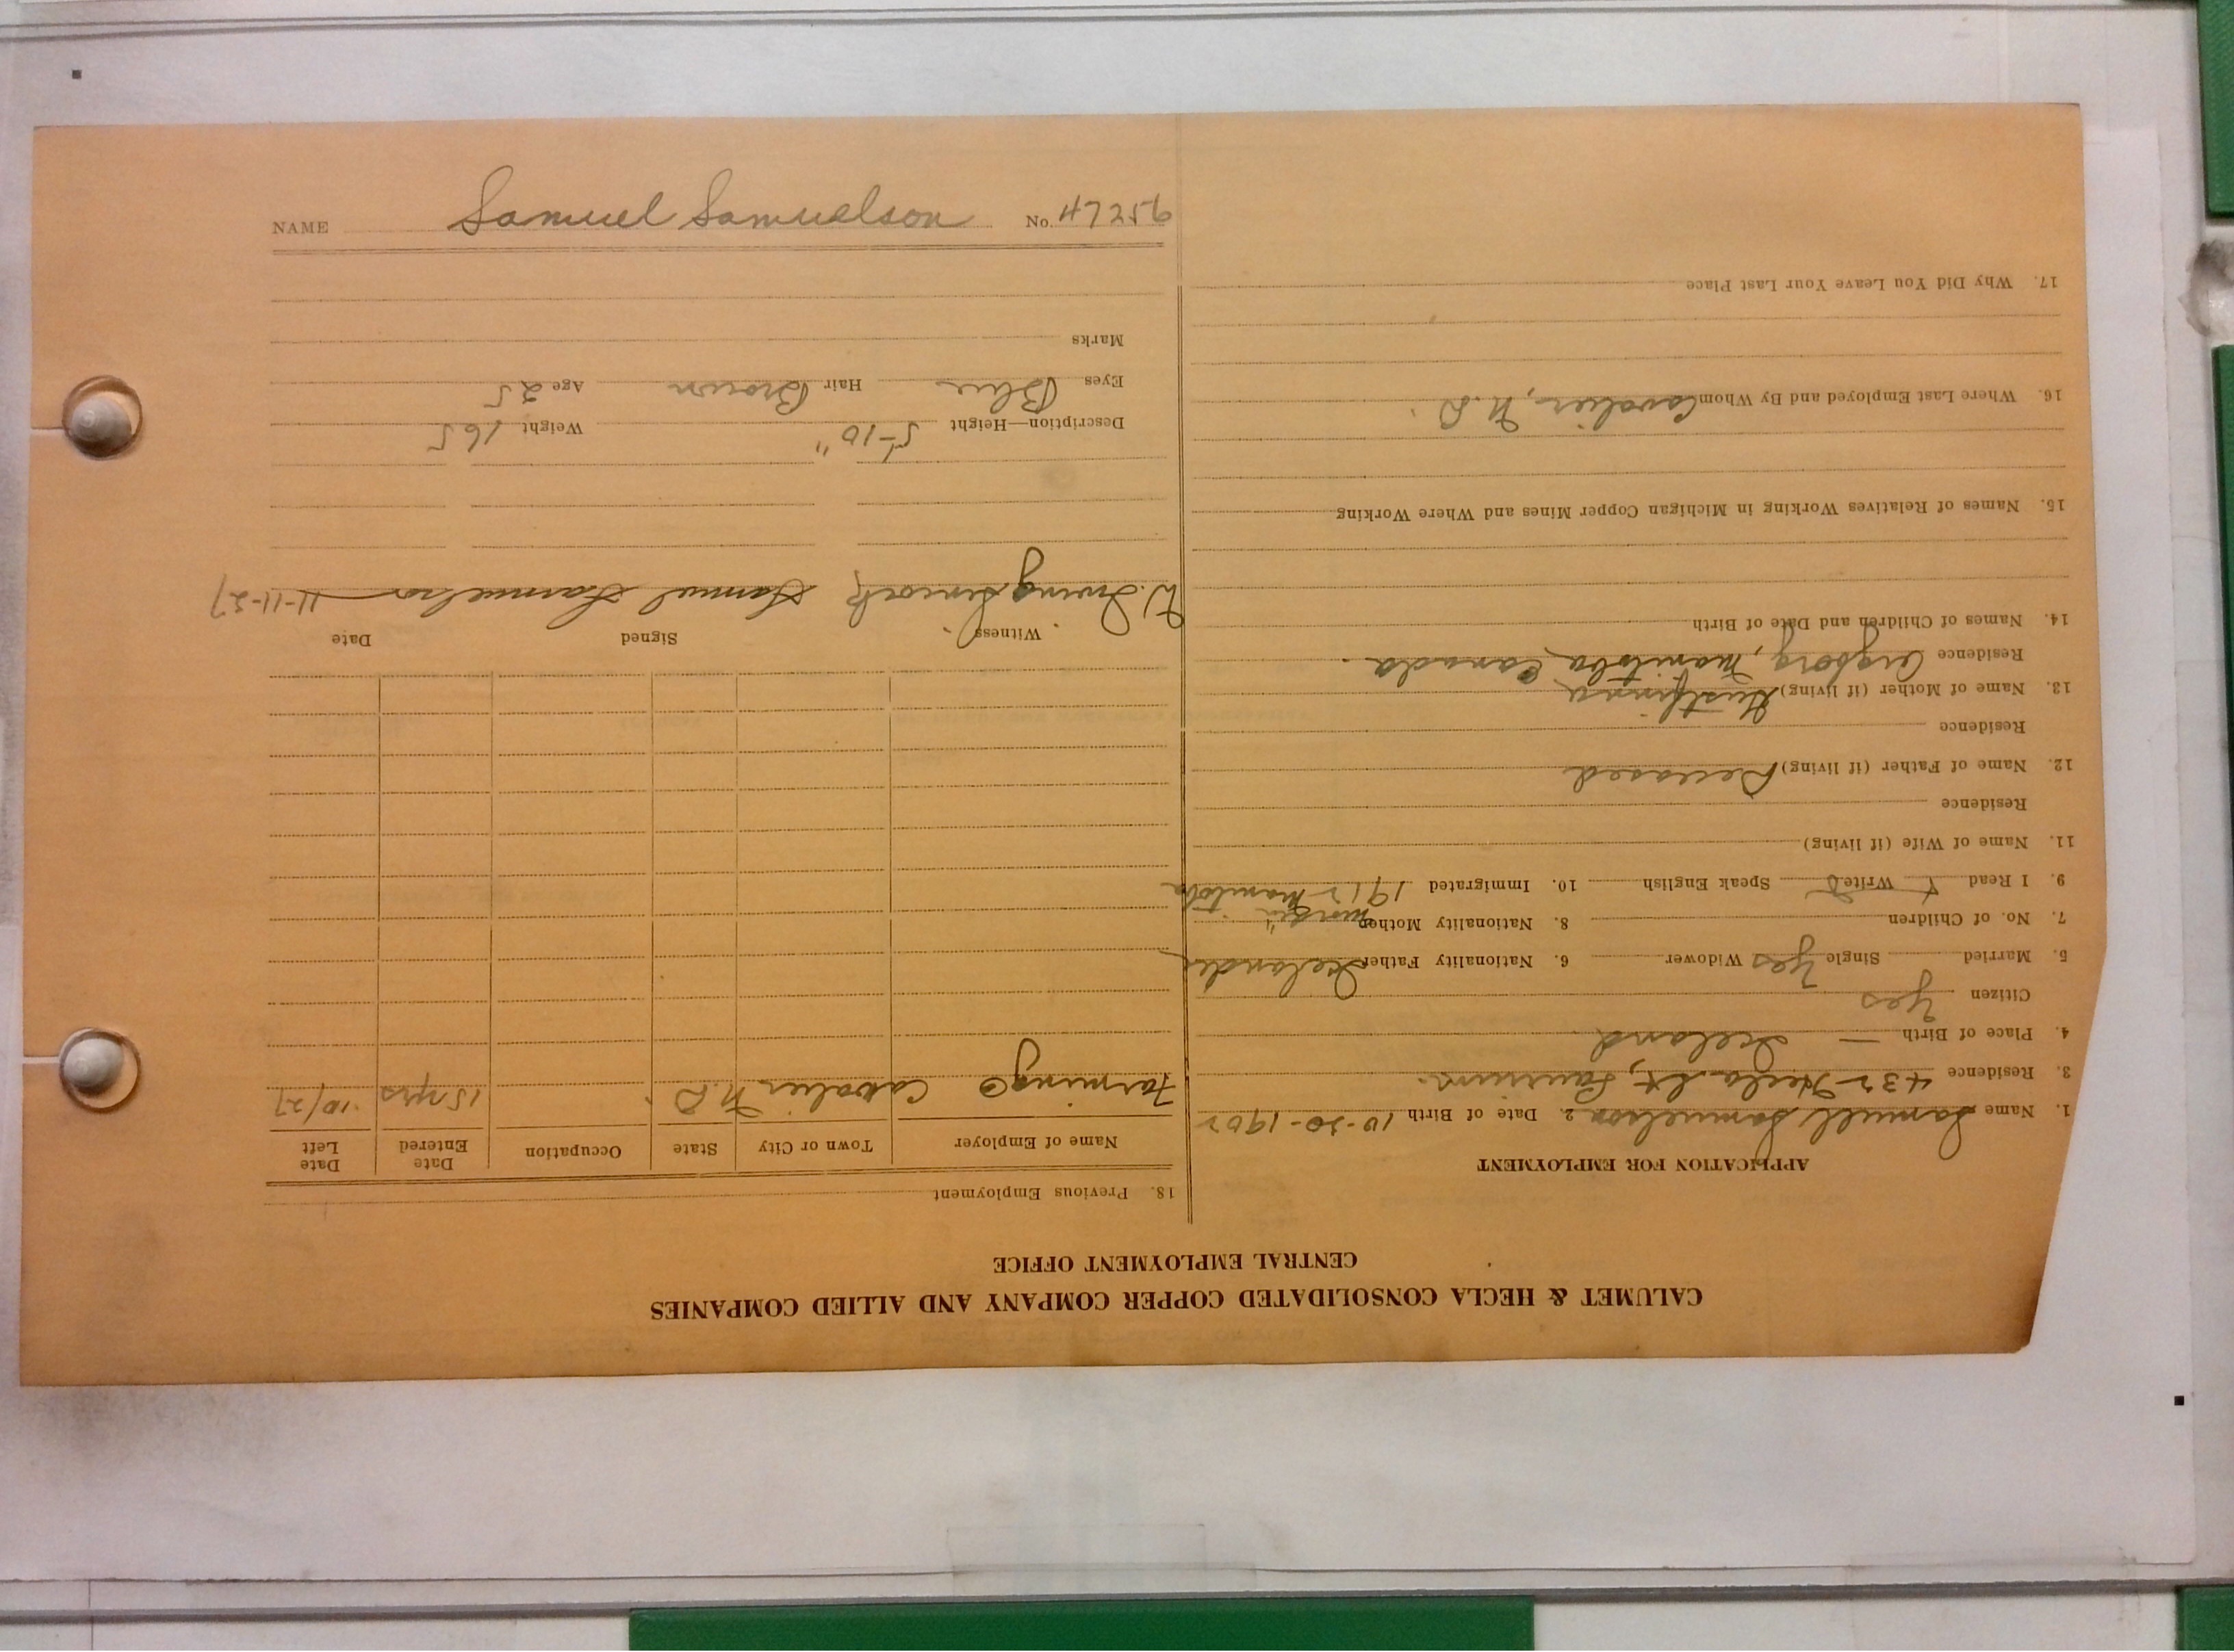 NAME Samuel Samuelson No. 47259
CALUMET & HECLA CONSOLIDATED COPPER COMPANY AND ALLIED COMPANIES
CENTRAL EMPLOYMENT OFFICE
APPLICATION FOR EMPLOYMENT
1. Name Samuel Samuelson 2. Date of Birth 10-20-1902
3. Residence 432 Hecla St, Laurium.
4. Place of Birth — Iceland
Citizen Yes
5. Married Single Yes Widower 6. Nationality Father Icelander
7. No. of Children 8. Nationality Mother "
9. I Read X Write Speak English 10. Immigrated 1912 Manitoba
11. Name of Wife (if living)
Residence
12. Name of Father (if living) Deceased
Residence
13. Name of Mother (if living)
Residence Manitoba Canada.
14. Names of Children and Date of Birth
15. Names of Relatives Working in Michigan Copper Mines and Where Working
16. Where Last Employed and By Whom Cavalier, N.D.
17. Why Did You Leave Your Last Place
18. Previous Employment
Name of Employer Town or City State Occupation Date Entered Date Left
Farming Cavalier N.D. 15 yrs 10/27
Witness Signed Date
W. Irving Samuel Samuelson 11-11-27
Description—Height 5-10" Weight 165
Eyes Blue Hair Brown Age 25
Marks